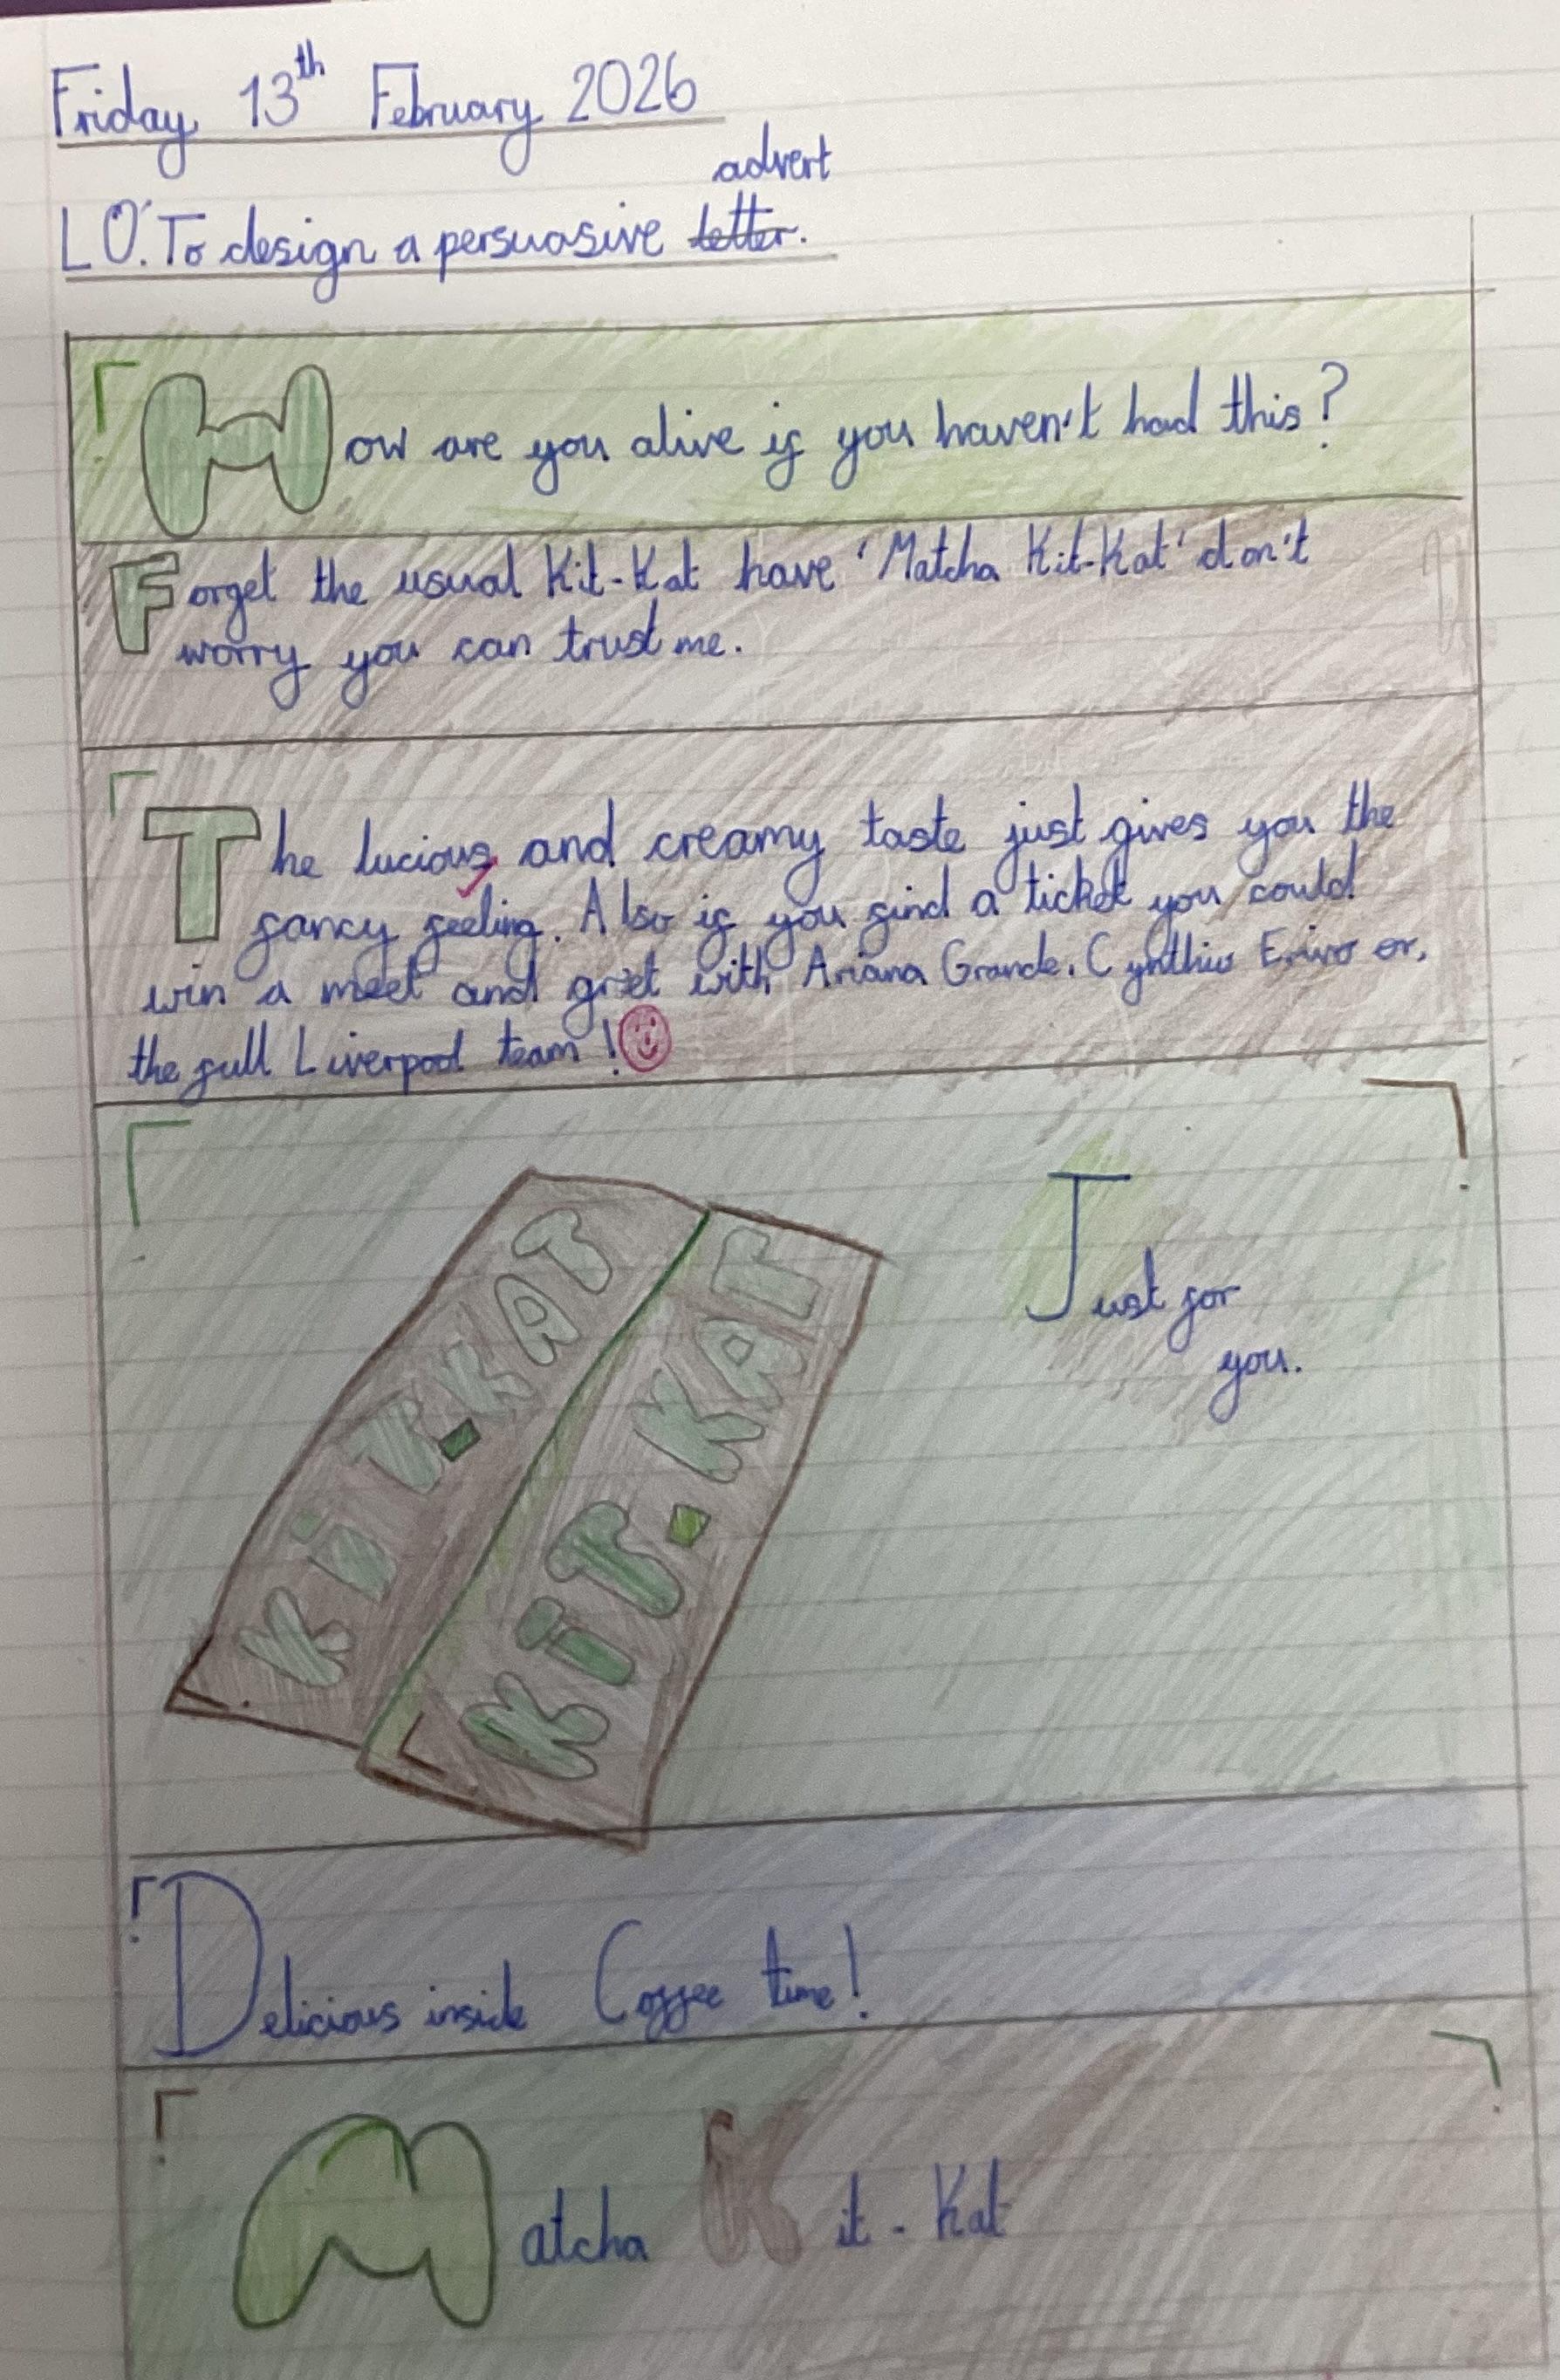 Friday 13th February 2026
advert
LO: To design a persuasive letter.
How are you alive if you haven't had this?
Forget the usual Kit-Kat have 'Matcha Kit-Kat' don't
worry you can trust me.
The lucious and creamy taste just gives you the
fancy feeling. Also if you find a ticket you could
win a meet and greet with Ariana Grande, Cynthia Erivo or,
the full Liverpool team!
KiT-KAT
KiT-KAT
Just for
you.
Delicious inside Coffee time!
Matcha Kit-Kat